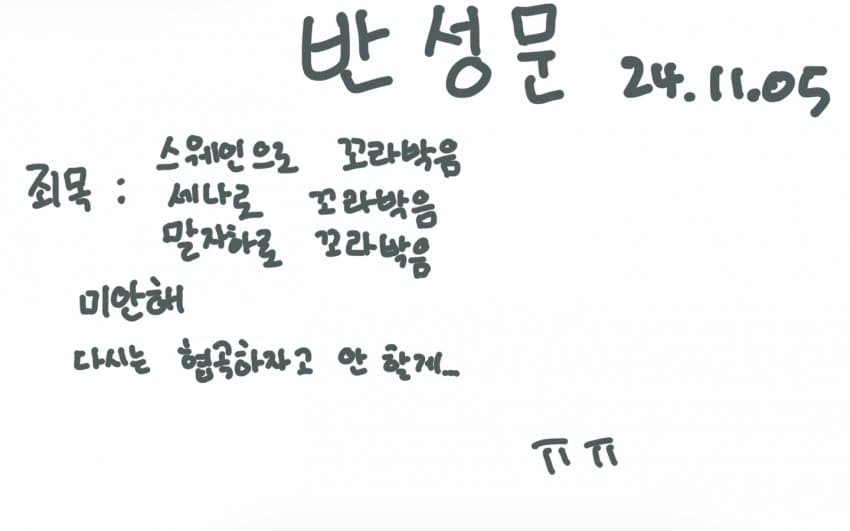 반성문 24.11.05
죄목 : 스웨인으로 꼬라박음
세나로 꼬라박음
말자하로 꼬라박음
미안해
다시는 협곡하자고 안 할게...
ㅠㅠ